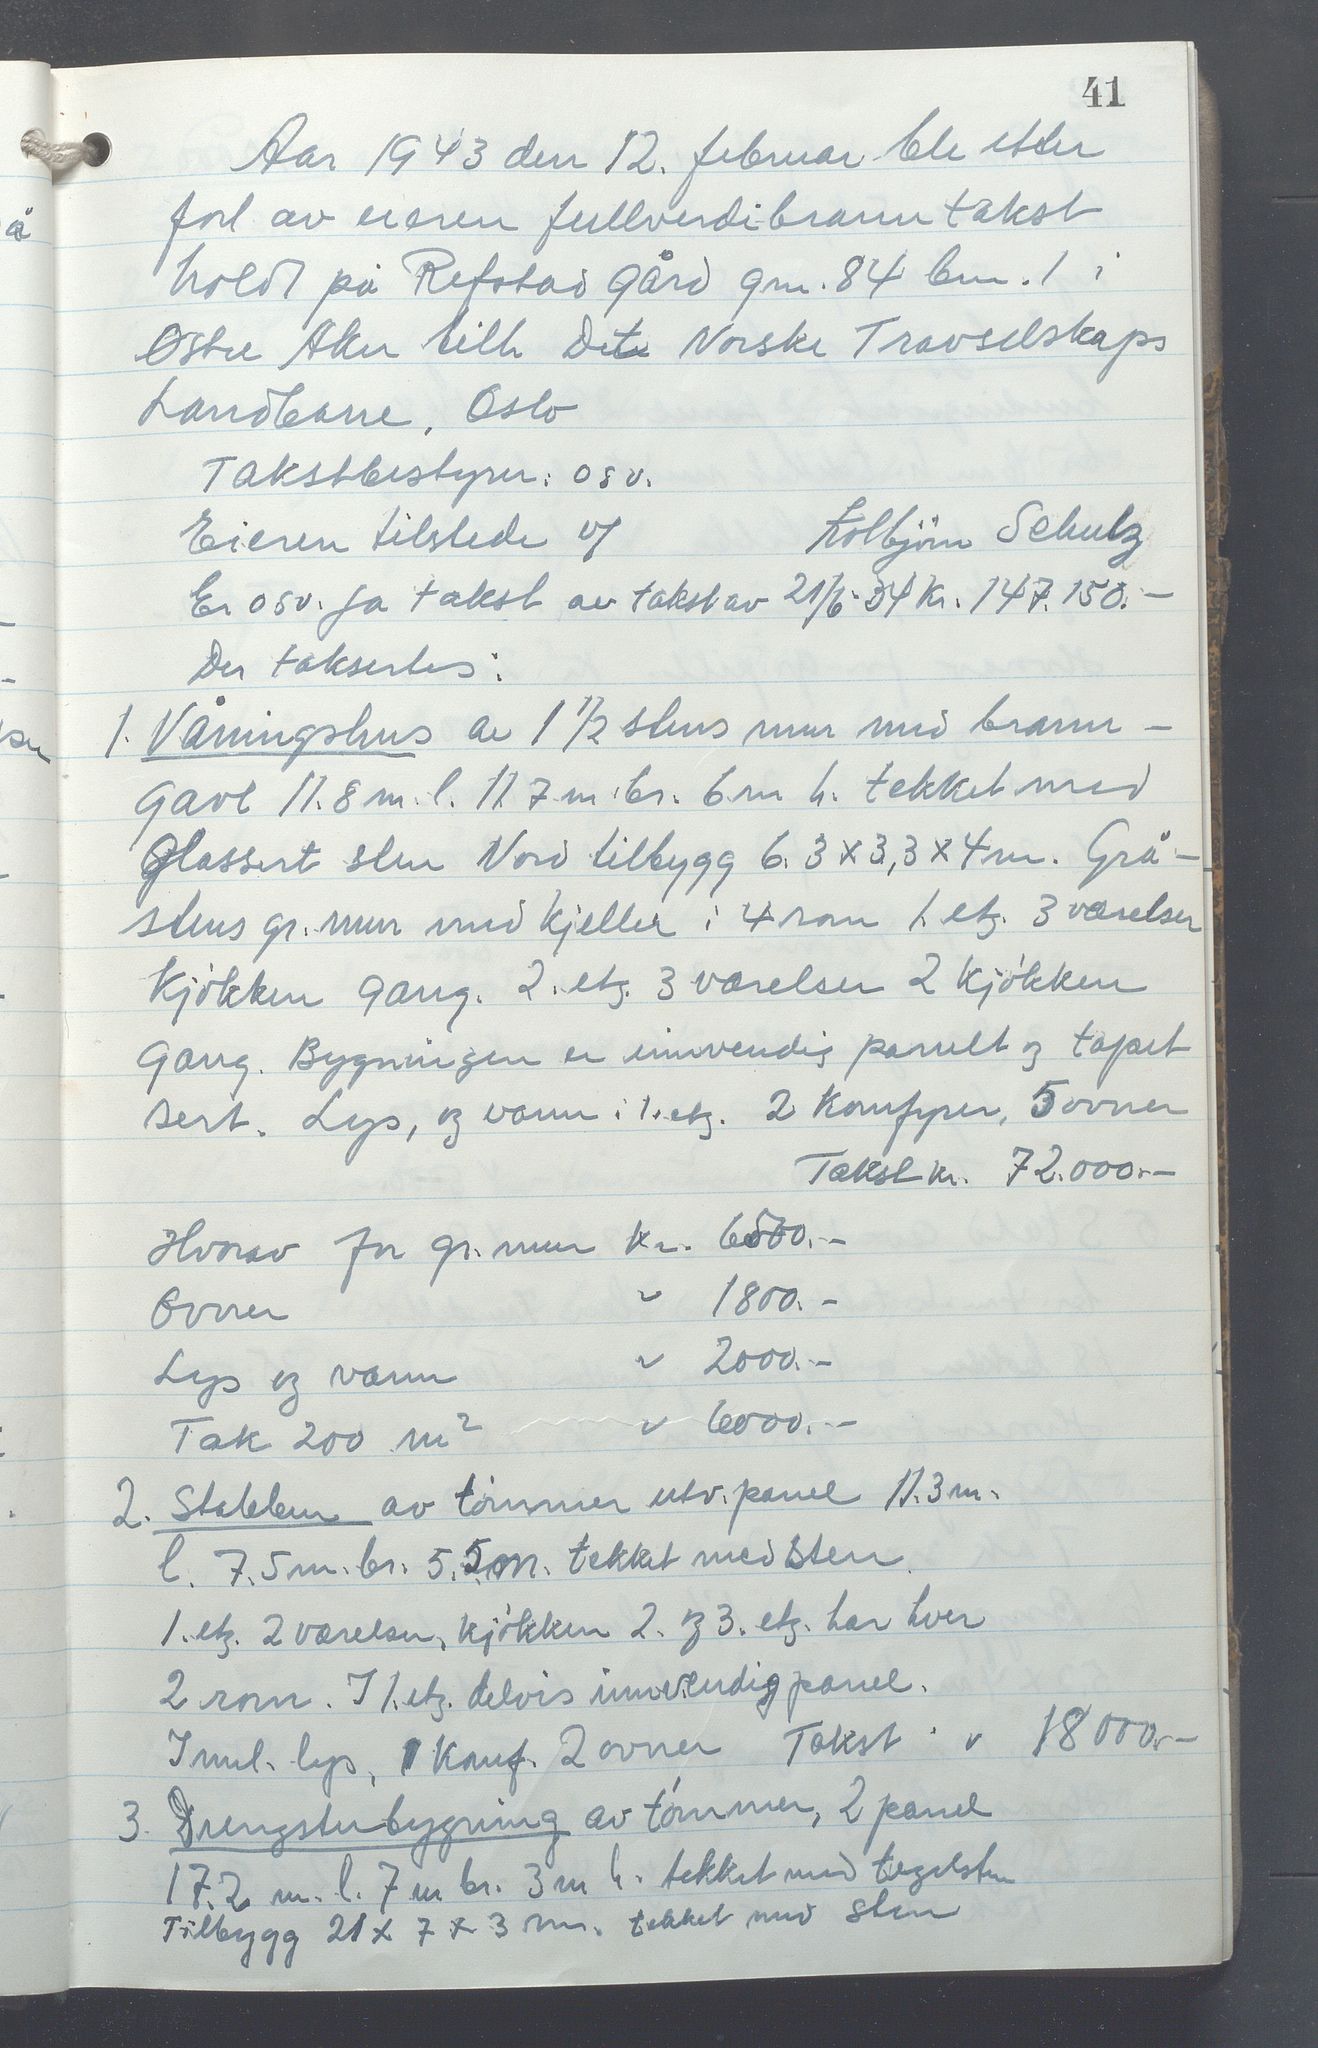 41
Aar 1943 den 12. februar ble etter
forl av eieren fullverdibranntakst
holdt på Refstad gård gnr. 84 bnr. 1 i
Østre Aker tilh Det Norske Travselskaps
Landbane, Oslo
Takstbestyrer: osv.
Eieren tilstede v/ Kolbjørn Schulz
Er osv. ja takst av takst av 21/6-34 kr. 147.150.-
Der taksertes:
1. Våningshus av 1 1/2 stens mur med brann-
gavl 11.8 m. l. 11.7 m. br. 6 m h. tekket med
Glassert sten Nord tilbygg 6.3 x 3,3 x 4 m. Grå-
stens gr. mur med kjeller i 4 rom 1. etg. 3 værelser
kjøkken gang. 2. etg. 3 værelser 2 kjøkken
gang. Bygningen er innvendig panelt og tapet
sert. Lys, og vann i 1. etg. 2 komfyrer, 5 ovner
Takst kr. 72.000.-
Hvorav for gr. mur kr. 6500.-
Ovner " 1800.-
Lys og vann " 2000.-
Tak 200 m² " 6000.-
2. Stabbur av tømmer utv. panel 11.3 m.
l. 7.5 m. br. 5.5 m. tekket med sten.
1. etg. 2 værelser, kjøkken 2. og 3. etg. har hver
2 rom. I 1. etg. delvis innvendig panel.
Innl. lys, 1 komf. 2 ovner Takst " 18000.-
3. Drengstubygning av tømmer, 2 panel
17.2 m. l. 7 m br. 3 m h. tekket med teglsten
Tilbygg 21 x 7 x 3 m. tekket med sten